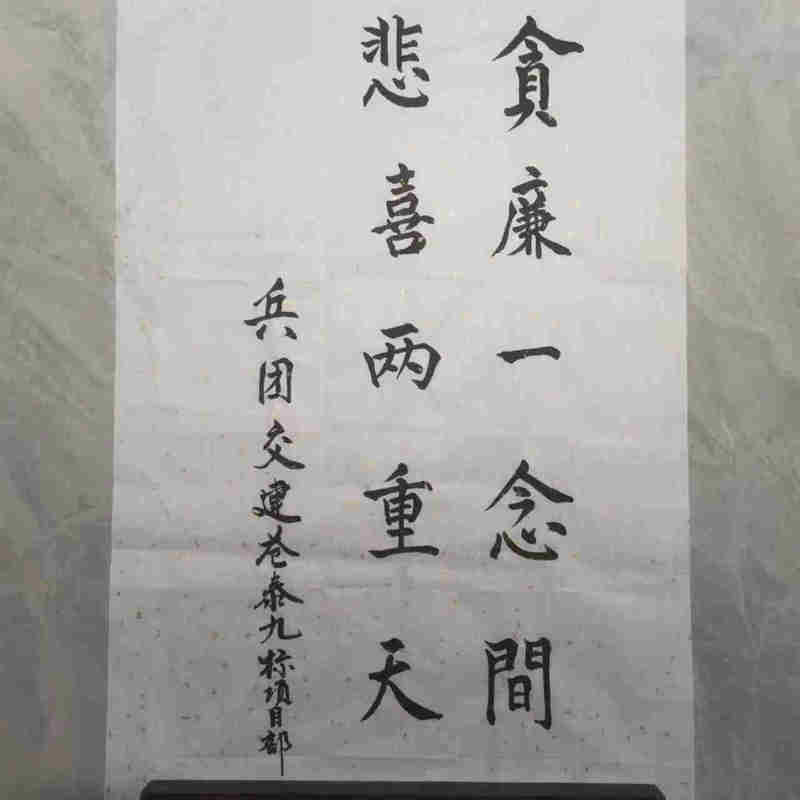 貪廉一念間
悲喜两重天
兵团交建苍泰九标项目部